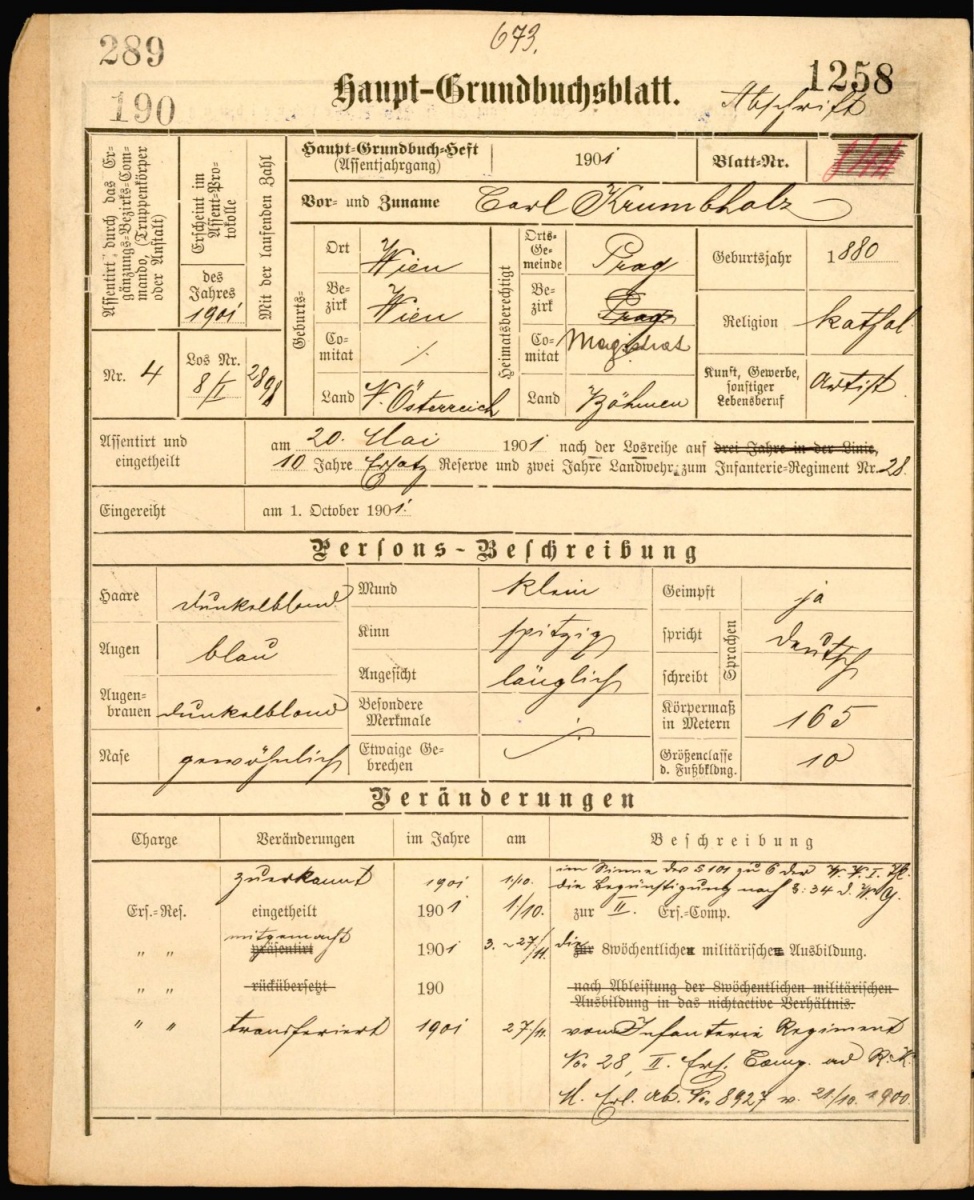 289
673.
1258
190
Haupt-Grundbuchsblatt.
Abschrift
Assentirt durch das Ergänzungs-Bezirks-Commando, (Truppenkörper oder Anstalt)
Nr. 4
Erscheint im Assent-Protokolle
des Jahres 1901
Los Nr. 8/I
Mit der laufenden Zahl
2898
Haupt-Grundbuch-Heft (Assentjahrgang) 1901 Blatt-Nr.
Vor- und Zuname Carl Krumbholz
Geburts-
Ort Wien
Bezirk Wien
Comitat ./.
Land N. Österreich
Heimatsberechtigt
Ortsgemeinde Prag
Bezirk Prag
Comitat Magistrat
Land Böhmen
Geburtsjahr 1880
Religion kathol
Kunst, Gewerbe, sonstiger Lebensberuf Artist
Assentirt und eingetheilt
am 20. Mai 1901 nach der Losreihe auf drei Jahre in der Linie,
10 Jahre Ersatz Reserve und zwei Jahre Landwehr, zum Infanterie-Regiment Nr. 28.
Eingereiht am 1. October 1901.
Persons-Beschreibung
Haare dunkelblond
Augen blau
Augenbrauen dunkelblond
Nase gewöhnlich
Mund klein
Kinn spitzig
Angesicht länglich
Besondere Merkmale
Etwaige Gebrechen
Geimpft ja
spricht
schreibt
Sprachen
deutsch
Körpermaß in Metern 165
Größenclasse d. Fußbkldng. 10
Veränderungen
Charge Veränderungen im Jahre am Beschreibung
zuerkannt 1901 1/10. im Sinne des § 101 zu 6 der W. V. I. Th.
die Begünstigung nach §: 34 d. W. G.
Ers.-Res. eingetheilt 1901 1/10. zur II. Ers.-Comp.
mitgemacht
" " präsentirt 1901 3. - 27/11. die zur 8wöchentlichen militärischen Ausbildung.
" " rückübersetzt 190 nach Ableistung der 8wöchentlichen militärischen
Ausbildung in das nichtactive Verhältnis.
" " transferiert 1901 27/11. vom Infanterie Regiment
No. 28, II. Ers. Comp. ad R. K.
M. Erl. Ab. No. 8927 v. 21/10. 1900.